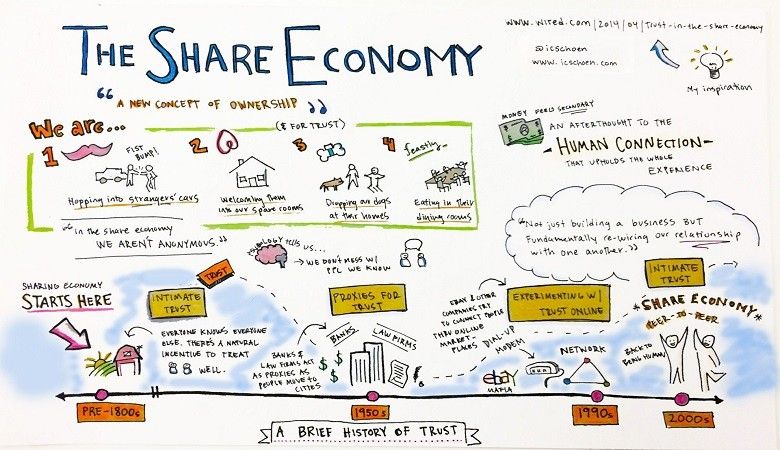 THE SHARE ECONOMY
"A NEW CONCEPT OF OWNERSHIP"
www.wired.com/2014/04/trust-in-the-share-economy
@icschoen
www.icschoen.com
My inspiration
We are...
($ FOR TRUST)
1
FIST BUMP!
Hopping into strangers' cars
2
Welcoming them
into our spare rooms
3
Dropping our dogs
at their homes
4
feastly
Eating in their
dining rooms
"In the share economy
WE AREN'T ANONYMOUS."
MONEY FEELS SECONDARY
AN AFTERTHOUGHT TO THE
- HUMAN CONNECTION -
THAT UPHOLDS THE WHOLE
EXPERIENCE
"Not just building a business BUT
Fundamentally re-wiring our relationship
with one another."
PSYCHOLOGY tells us...
→ WE DON'T MESS W/
PPL WE KNOW
SHARING ECONOMY
STARTS HERE
TRUST
INTIMATE
TRUST
EVERYONE KNOWS EVERYONE
ELSE, THERE'S A NATURAL
INCENTIVE TO TREAT
WELL.
PROXIES FOR
TRUST
BANKS
LAW FIRMS
BANKS &
LAW FIRMS ACT
AS PROXIES AS
PEOPLE MOVE TO
CITIES
$
$
$
$
EXPERIMENTING W/
TRUST ONLINE
EBAY & OTHER
COMPANIES TRY
TO CONNECT PEOPLE
THRU ONLINE
MARKET-
PLACES
DIAL-UP
MODEM
ebay
NETWORK
INTIMATE
TRUST
*SHARE ECONOMY*
PEER-TO-PEER
BACK TO
BEING HUMAN
PRE-1800s
1950s
1990s
2000s
A BRIEF HISTORY OF TRUST